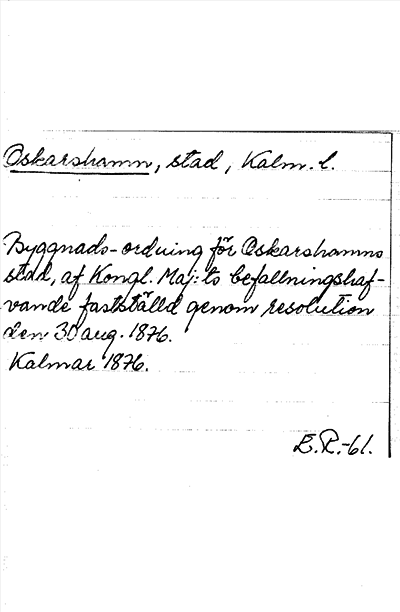 Oskarshamn, stad, Kalm. l.
Byggnads-ordning för Oskarshamns
stad, af Kongl. Maj:ts befallningshaf-
vande fastställd genom resolution
den 30 aug. 1876.
Kalmar 1876.
E.R.-61.